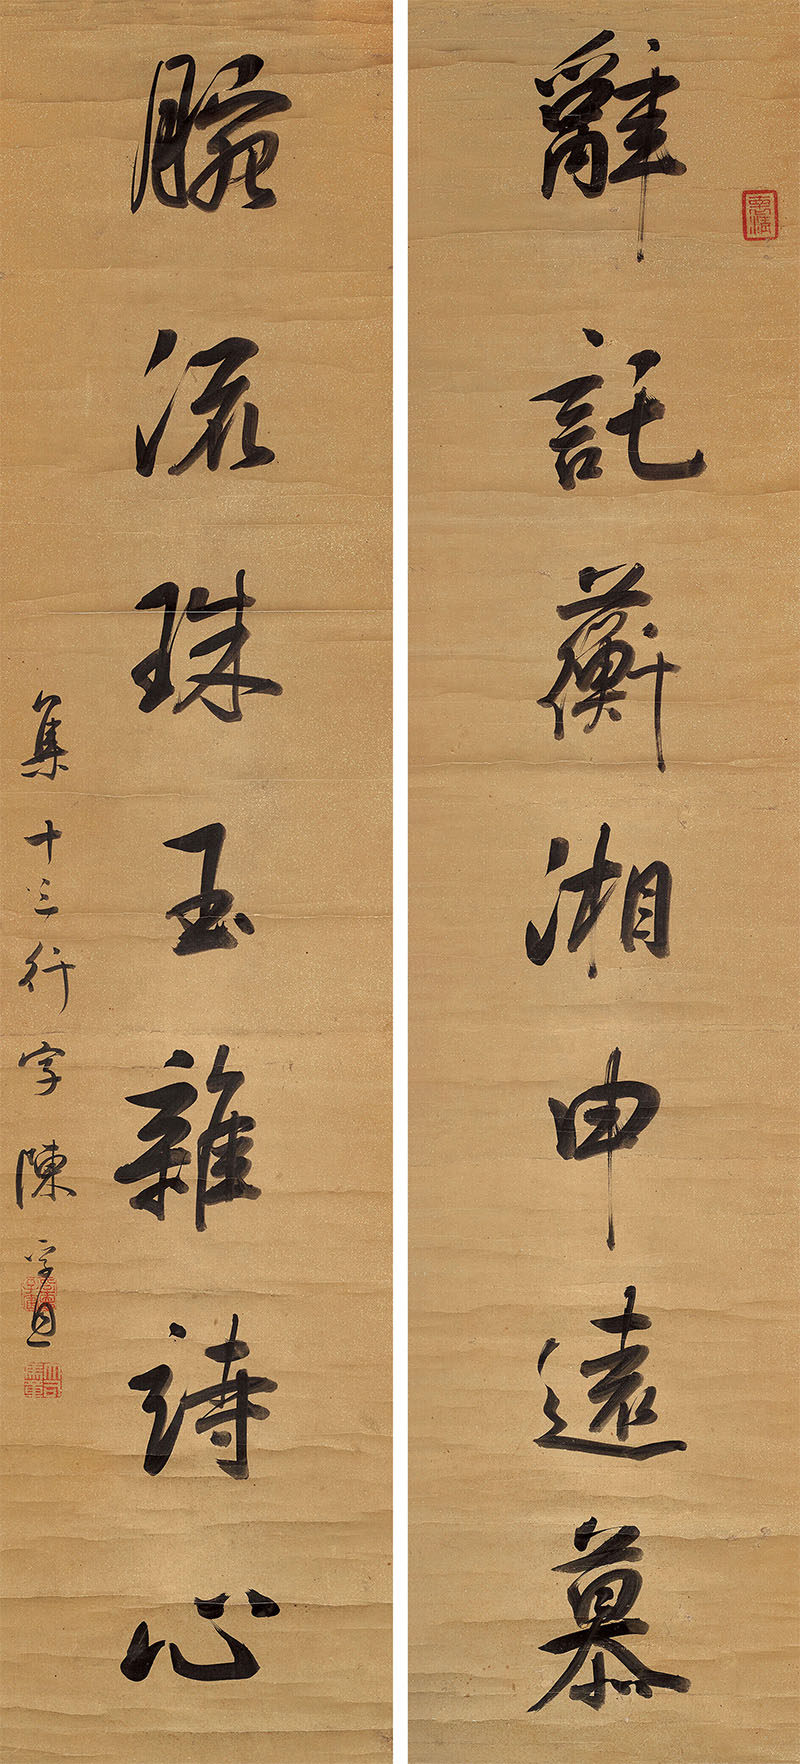 辭託蘅湘申遠慕
腕流珠玉雜詩心
集十三行字 陳孚恩